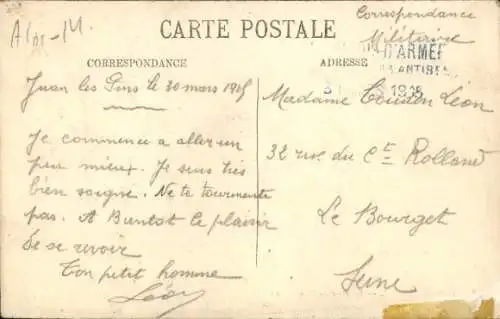 CARTE POSTALE
Correspondance
Militaire
CORRESPONDANCE
ADRESSE
D'ARMÉE
ANTIBES
Juan les Pins le 30 mars 1918
Je commence a aller un
peu mieux. Je suis très
bien soigné. Ne te tourmente
pas. A Bientot le plaisir
de se revoir
Ton petit homme
Léon
Madame Coudon Léon
32 rue du Ct Rolland
Le Bourget
Seine